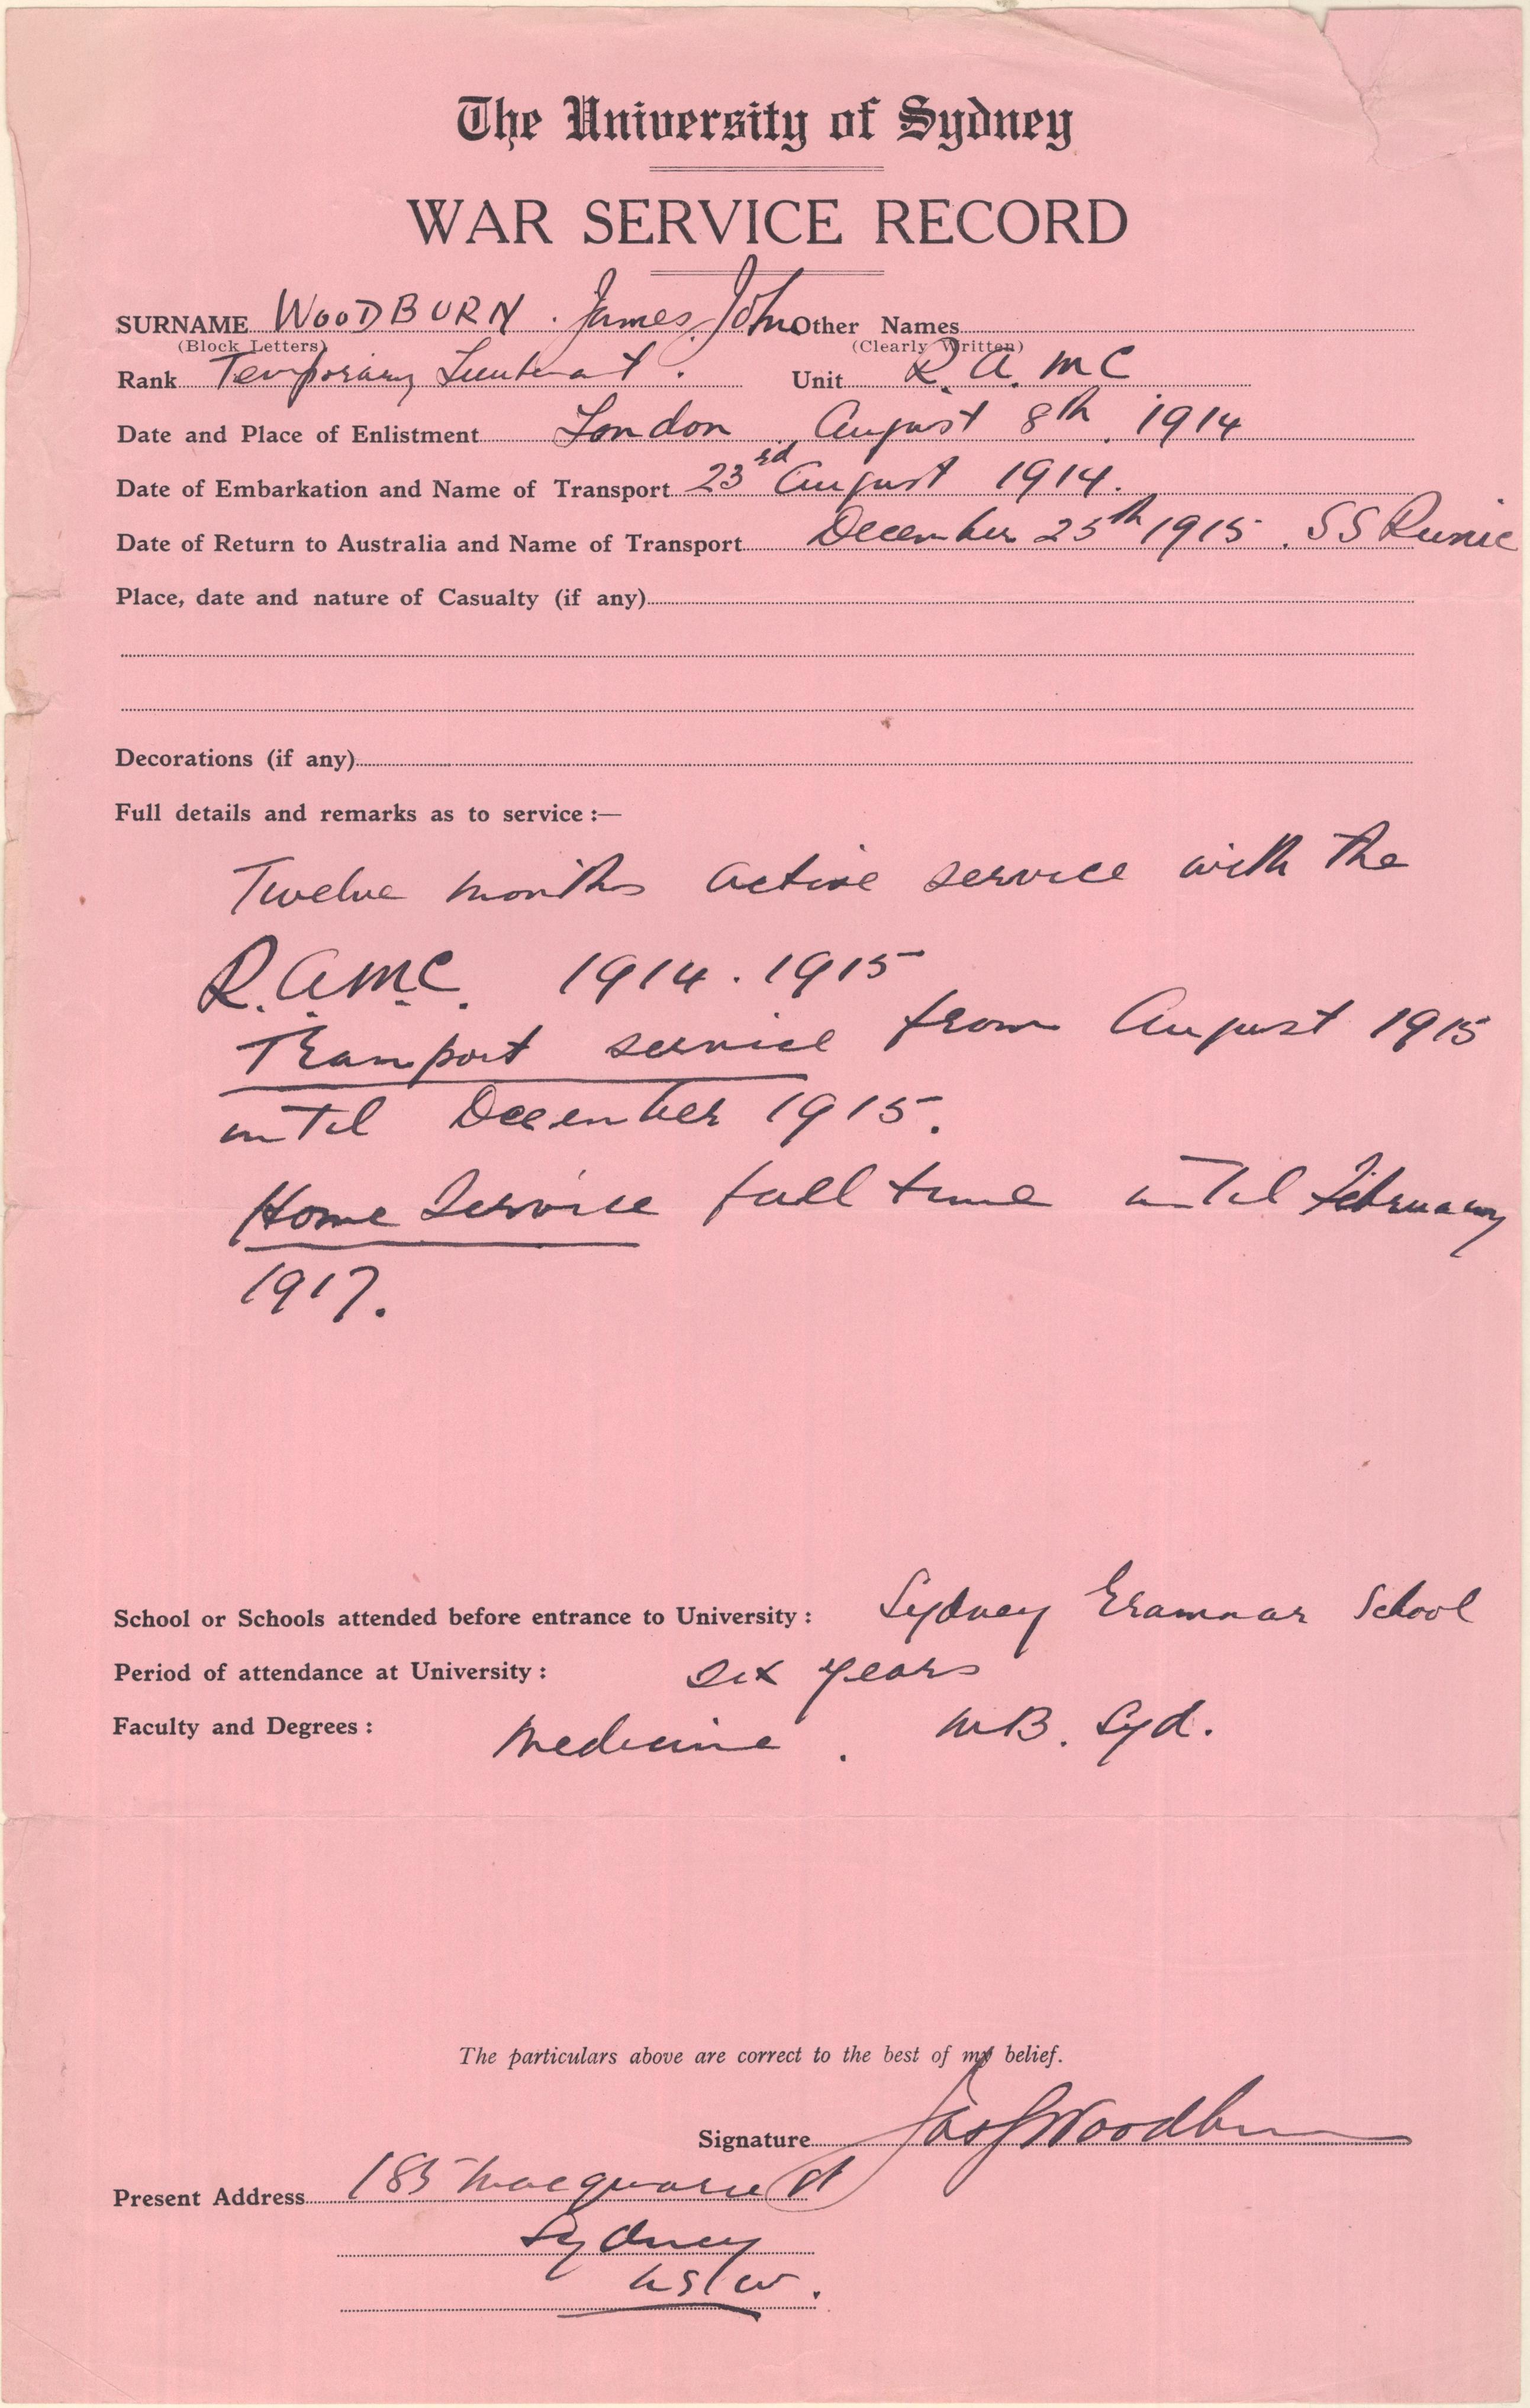 The University of Sydney
WAR SERVICE RECORD
SURNAME WOODBURN. James John Other Names
(Block Letters) (Clearly Written)
Rank Temporary Lieutenant. Unit R.A.M.C
Date and Place of Enlistment London, August 8th. 1914
Date of Embarkation and Name of Transport 23rd August 1914.
Date of Return to Australia and Name of Transport December 25th 1915. SS Runic
Place, date and nature of Casualty (if any)
Decorations (if any)
Full details and remarks as to service:—
Twelve months active service with the
R.A.M.C. 1914.1915
Transport service from August 1915
until December 1915.
Home Service full time until February
1917.
School or Schools attended before entrance to University: Sydney Grammar School
Period of attendance at University: six years
Faculty and Degrees: Medicine. MB. Syd.
The particulars above are correct to the best of my belief.
Signature Jas J Woodburn
Present Address 185 Macquarie St
Sydney
NSW.